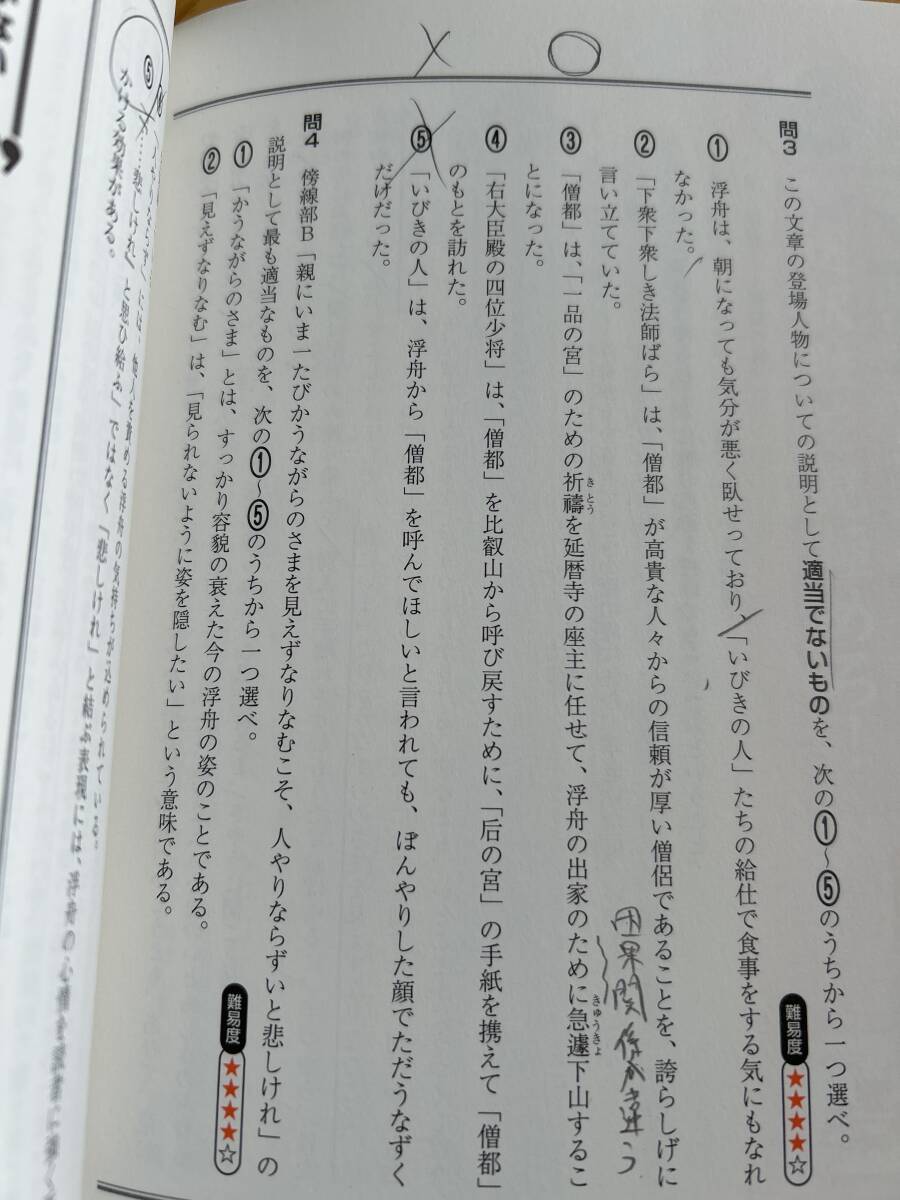 問3 この文章の登場人物についての説明として適当でないものを、次の①〜⑤のうちから一つ選べ。
難易度★★★★☆
① 浮舟は、朝になっても気分が悪く臥せっており、「いびきの人」たちの給仕で食事をする気にもなれ
なかった。
② 「下衆下衆しき法師ばら」は、「僧都」が高貴な人々からの信頼が厚い僧侶であることを、誇らしげに
言い立てていた。
因果関係が違う
③ 「僧都」は、「一品の宮」のための祈禱を延暦寺の座主に任せて、浮舟の出家のために急遽下山するこ
きとう
きゅうきょ
とになった。
④ 「右大臣殿の四位少将」は、「僧都」を比叡山から呼び戻すために、「后の宮」の手紙を携えて「僧都」
のもとを訪れた。
⑤ 「いびきの人」は、浮舟から「僧都」を呼んでほしいと言われても、ぼんやりした顔でただうなずく
だけだった。
問4 傍線部B「親にいま一たびかうながらのさまを見えずなりなむこそ、人やりならずいと悲しけれ」の
説明として最も適当なものを、次の①〜⑤のうちから一つ選べ。
難易度★★★★☆
① 「かうながらのさま」とは、すっかり容貌の衰えた今の浮舟の姿のことである。
② 「見えずなりなむ」は、「見られないように姿を隠したい」という意味である。
には、他人を責める浮舟の気持ちが込められている。
⑤ 「……悲しけれ」と思ひ給ふ」ではなく「悲しけれ」と結ぶ表現には、浮舟の心情を
かける効果がある。